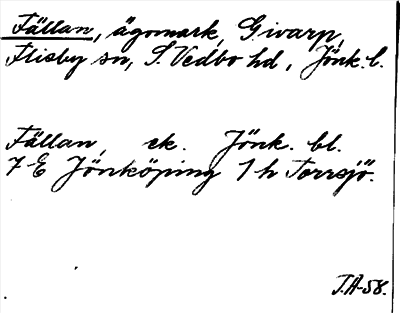 Fällan, ägomark, Givarp,
Flisby sn, S. Vedbo hd, Jönk. l.
Fällan, ek. Jönk. bl.
7-E Jönköping 1 h Torrsjö.
T.A-58.